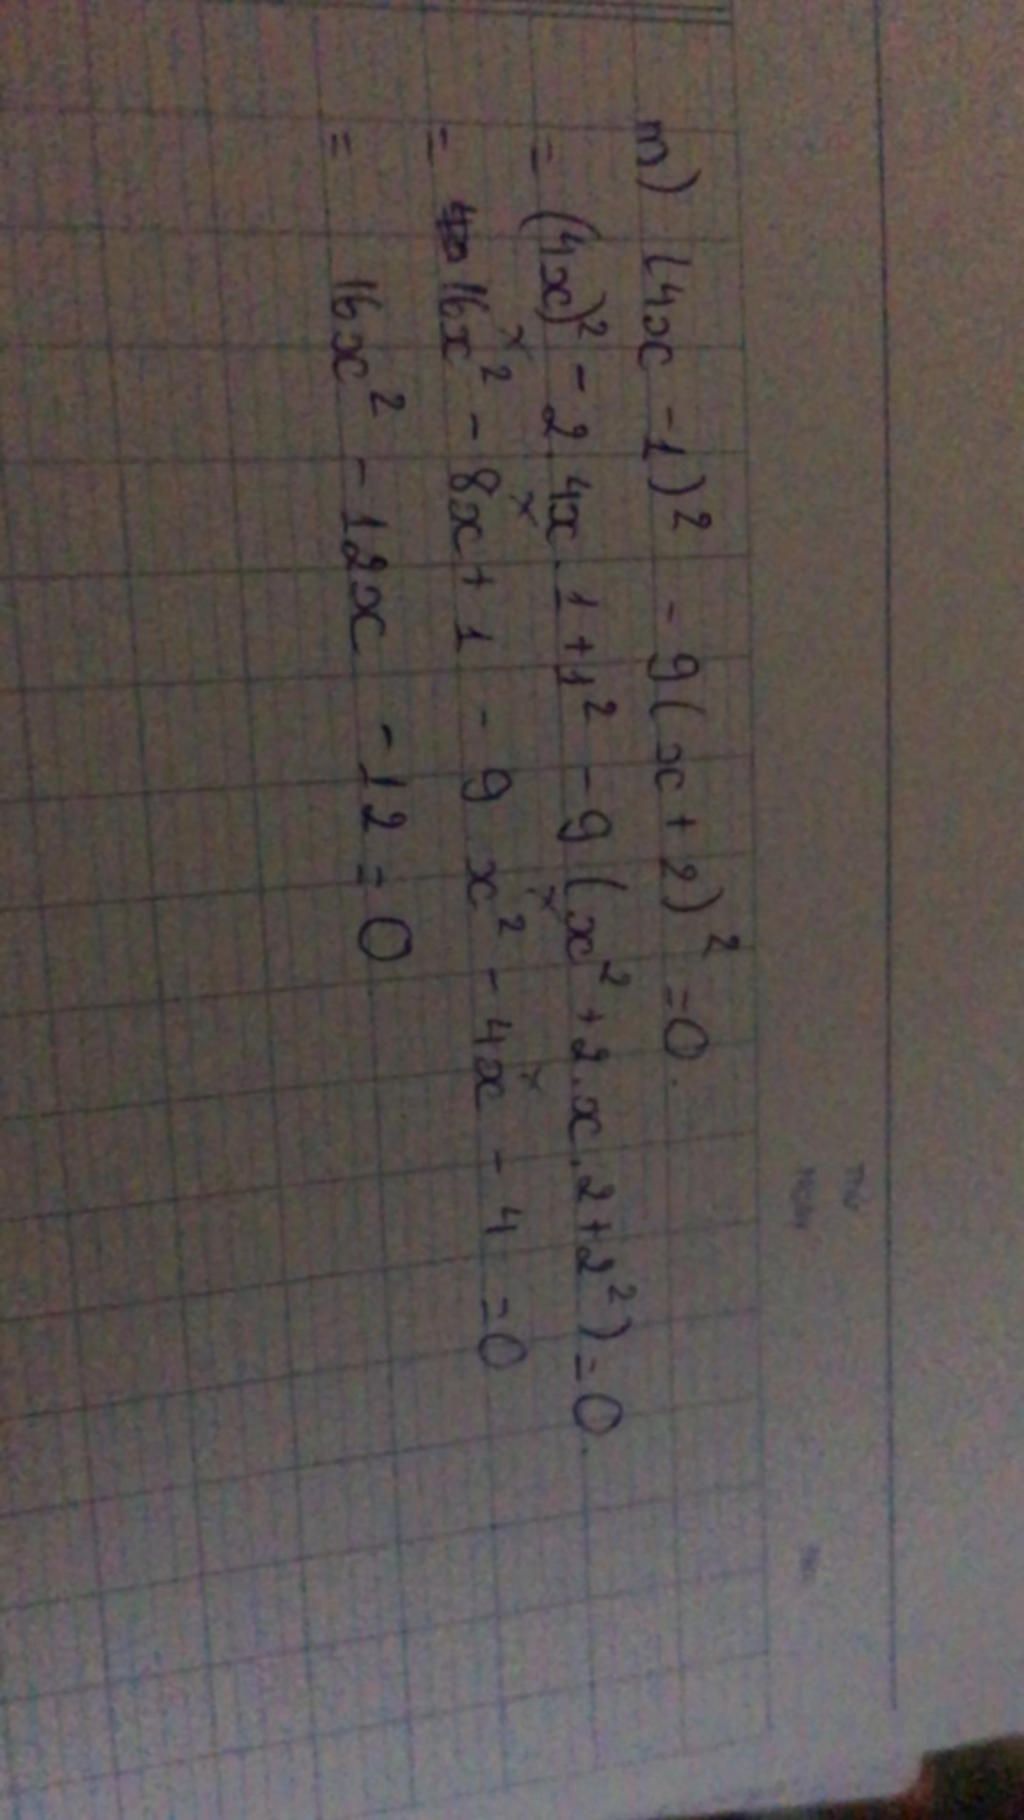 m) (4x - 1)² - 9(x + 2)² = 0.
= (4x)² - 2.4x.1 + 1² - 9(x² + 2.x.2 + 2²) = 0.
= 16x² - 8x + 1 - 9x² - 4x - 4 = 0
= 16x² - 12x - 12 = 0